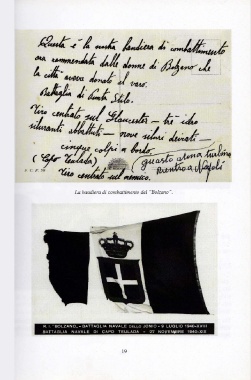 Questa è la nostra bandiera di combattimento
ora rammendata dalle donne di Bolzano che
la città aveva donato al varo.
Battaglia di Punta Stilo.
Tiro centrato sul Gloucester - tre idro
siluranti abbattuti - nove siluri deviati -
cinque colpi a bordo -
(Capo Teulada)
guasto arma turbina
rientro a Napoli
Tiro centrato sul nemico.
La bandiera di combattimento del "Bolzano".
R.I. "BOLZANO" - BATTAGLIA NAVALE DELLO JONIO - 9 LUGLIO 1940-XVIII
BATTAGLIA NAVALE DI CAPO TEULADA - 27 NOVEMBRE 1940-XIX
19